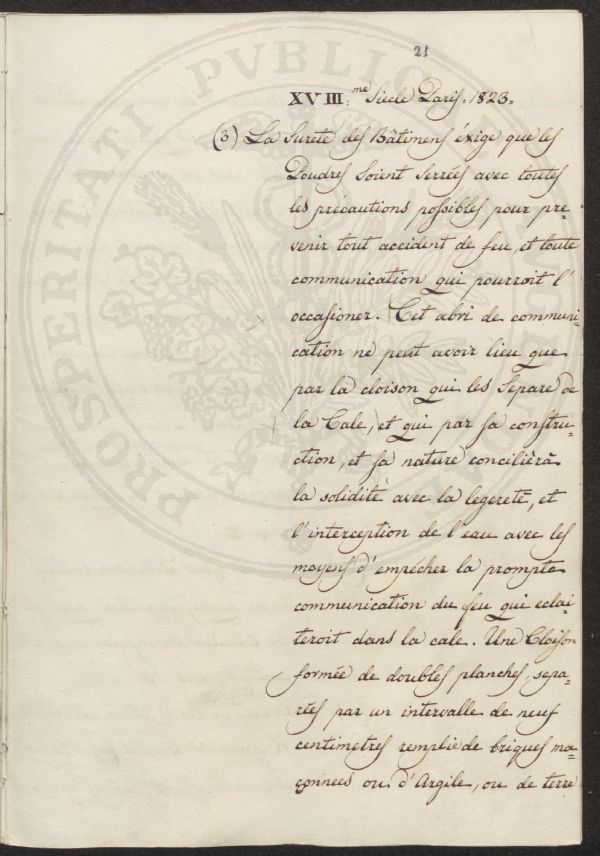 21
XVIII.me Siècle Paris=1823=
(3) La sureté des Bâtimens éxige que les
Poudres soient serrées avec toutes
les précautions possibles pour pre-
venir tout accident de feu, et toute
communication qui pourroit l'
occasioner. Cet abri de communi-
cation ne peut avoir lieu que
par la cloison qui les separe de
la Cale, et qui par sa constru-
ction, et sa nature concilièrà
la soliditè avec la legeretè, et
l'interception de l'eau avec les
moyens d'empécher la prompte
communication du feu qui eclai-
teroit dans la cale. Une Cloison
formée de doubles planches, sepa-
rées par un intervalle de neuf
centimetres remplie de briques ma-
çonnees ou d'Argile, ou de terre
PROSPERITATI PVBLICAE